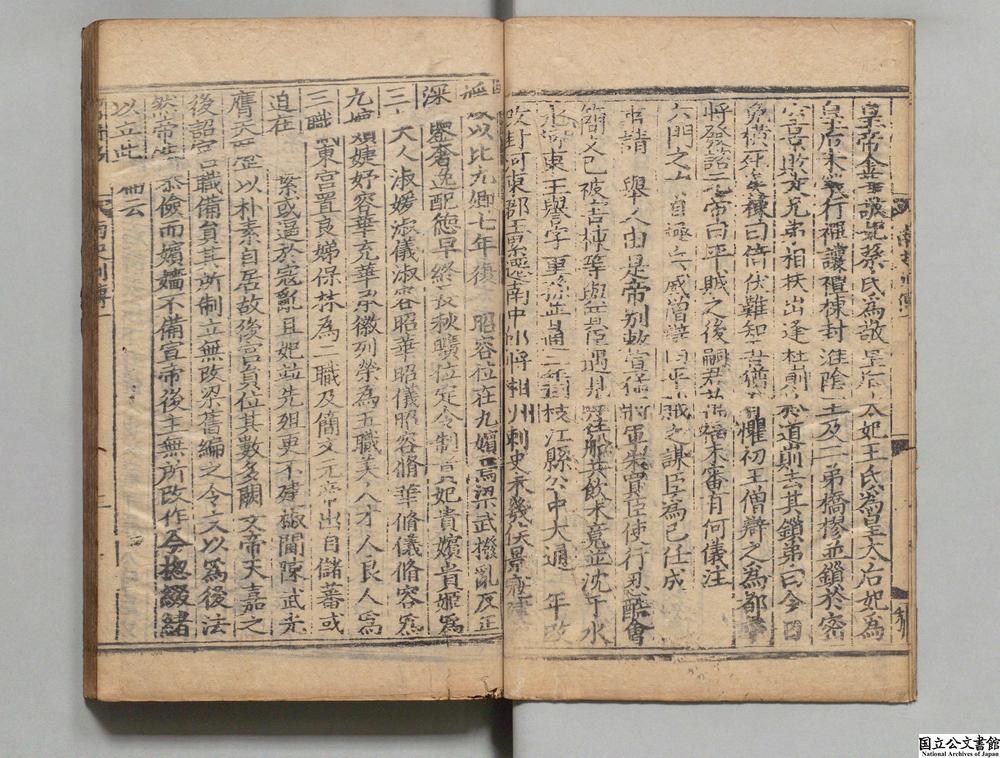 皇帝金華敬妃蔡氏為敬皇后太妃王氏為皇太后妃為
皇后未幾行禪讓禮棟封淮陰王及二弟橋樛並鎖於密
室景敗走兄弟相扶出逢杜崱於道則去其鎖弟曰今日
免橫死矣棟曰倚伏難知吾猶有懼初王僧辯之為都督
將發諮元帝曰平賊之後嗣君萬福未審有何儀注
六門之內自極兵威僧辯曰平賊之謀臣為己任成
請舉人由是帝別敕宣猛將軍朱買臣使行忍酷會
簡文已被害棟等與買臣遇見呼往船共飲未竟並沈于水
河東王譽字重孫普通二年封枝江縣公中大通年改
改封河東郡王累遷南中郎將湘州刺史未幾侯景寇建
南史列傳一
以比九卿七年復昭容位在九嬪焉梁武撥亂反正
深鑒奢逸配德早終長秋曠位定令制貴妃貴嬪貴姬為
三大人淑媛淑儀淑容昭華昭儀昭容脩華脩儀脩容為
九嬪婕妤容華充華承徽列榮為五職美人才人良人為
三職東宮置良娣保林為二職及簡文元帝出自儲蕃或
迫在縶或逼於寇亂且妃並先殂更不建椒閫陳武光
膺天歷以朴素自居故後宮員位其數多闕文帝天嘉之
後詔宮職備員其所制立無改梁舊編之令文以為後法
然帝性恭儉而嬪嬙不備宣帝後主無所改作今總綴緒
以立此篇云
国立公文書館
National Archives of Japan